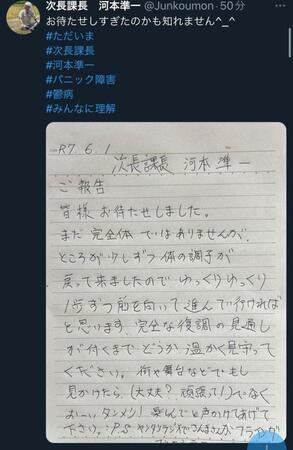 次長課長 河本準一 @Junkoumon·50分
お待たせしすぎたのかも知れません^_^
#ただいま
#次長課長
#河本準一
#パニック障害
#鬱病
#みんなに理解
R7.6.1
次長課長 河本準一
ご報告
皆様お待たせしました。
まだ完全体ではありませんが、
ところが少しずつ体の調子が
戻って来ましたのでゆっくりゆっくり
1歩ずつ前を向いて進んで行ければ
と思います。完全な復調の見通し
が付くまでどうか温かく見守って
ください。街や舞台などでもし
見かけたら、(大丈夫?頑張って!)でなく
おーいタンメン!喜んでと声かけてあげて
下さい。:P.S ヤンタンラジオでさんまさんがフライング